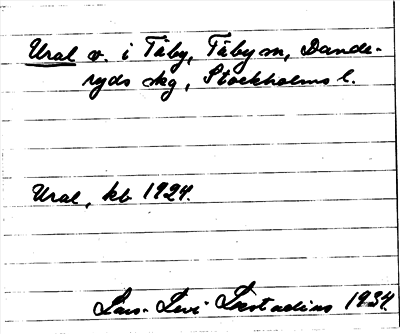 Ural v. i Täby, Täby sn, Dande-
ryds skg, Stockholms l.
Ural, kb 1924.
Lars-Levi Læstadius 1934.